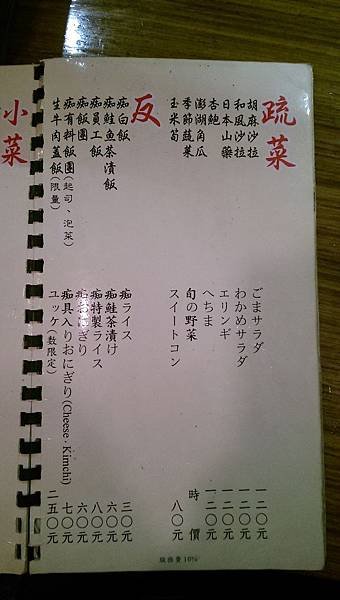 疏菜
胡麻沙拉
和風沙拉
日本山藥
杏鮑
澎湖角瓜
季節蔬菜
玉米筍
ごまサラダ
わかめサラダ
エリンギ
へちま
旬の野菜
スイートコン
一二〇元
一二〇元
一二〇元
一二〇元
時價
八〇元
反
痴白飯
痴鮭魚茶漬飯
痴員工飯
痴飯團
痴有料飯團(起司、泡菜)
生牛肉蓋飯(限量)
痴ライス
痴鮭茶漬け
痴特製ライス
にぎり
痴具入りおにぎり(Cheese·Kimchi)
ユッケ(数限定)
三〇元
六〇元
八〇元
六〇元
七〇元
二五〇元
服務費10%
小菜